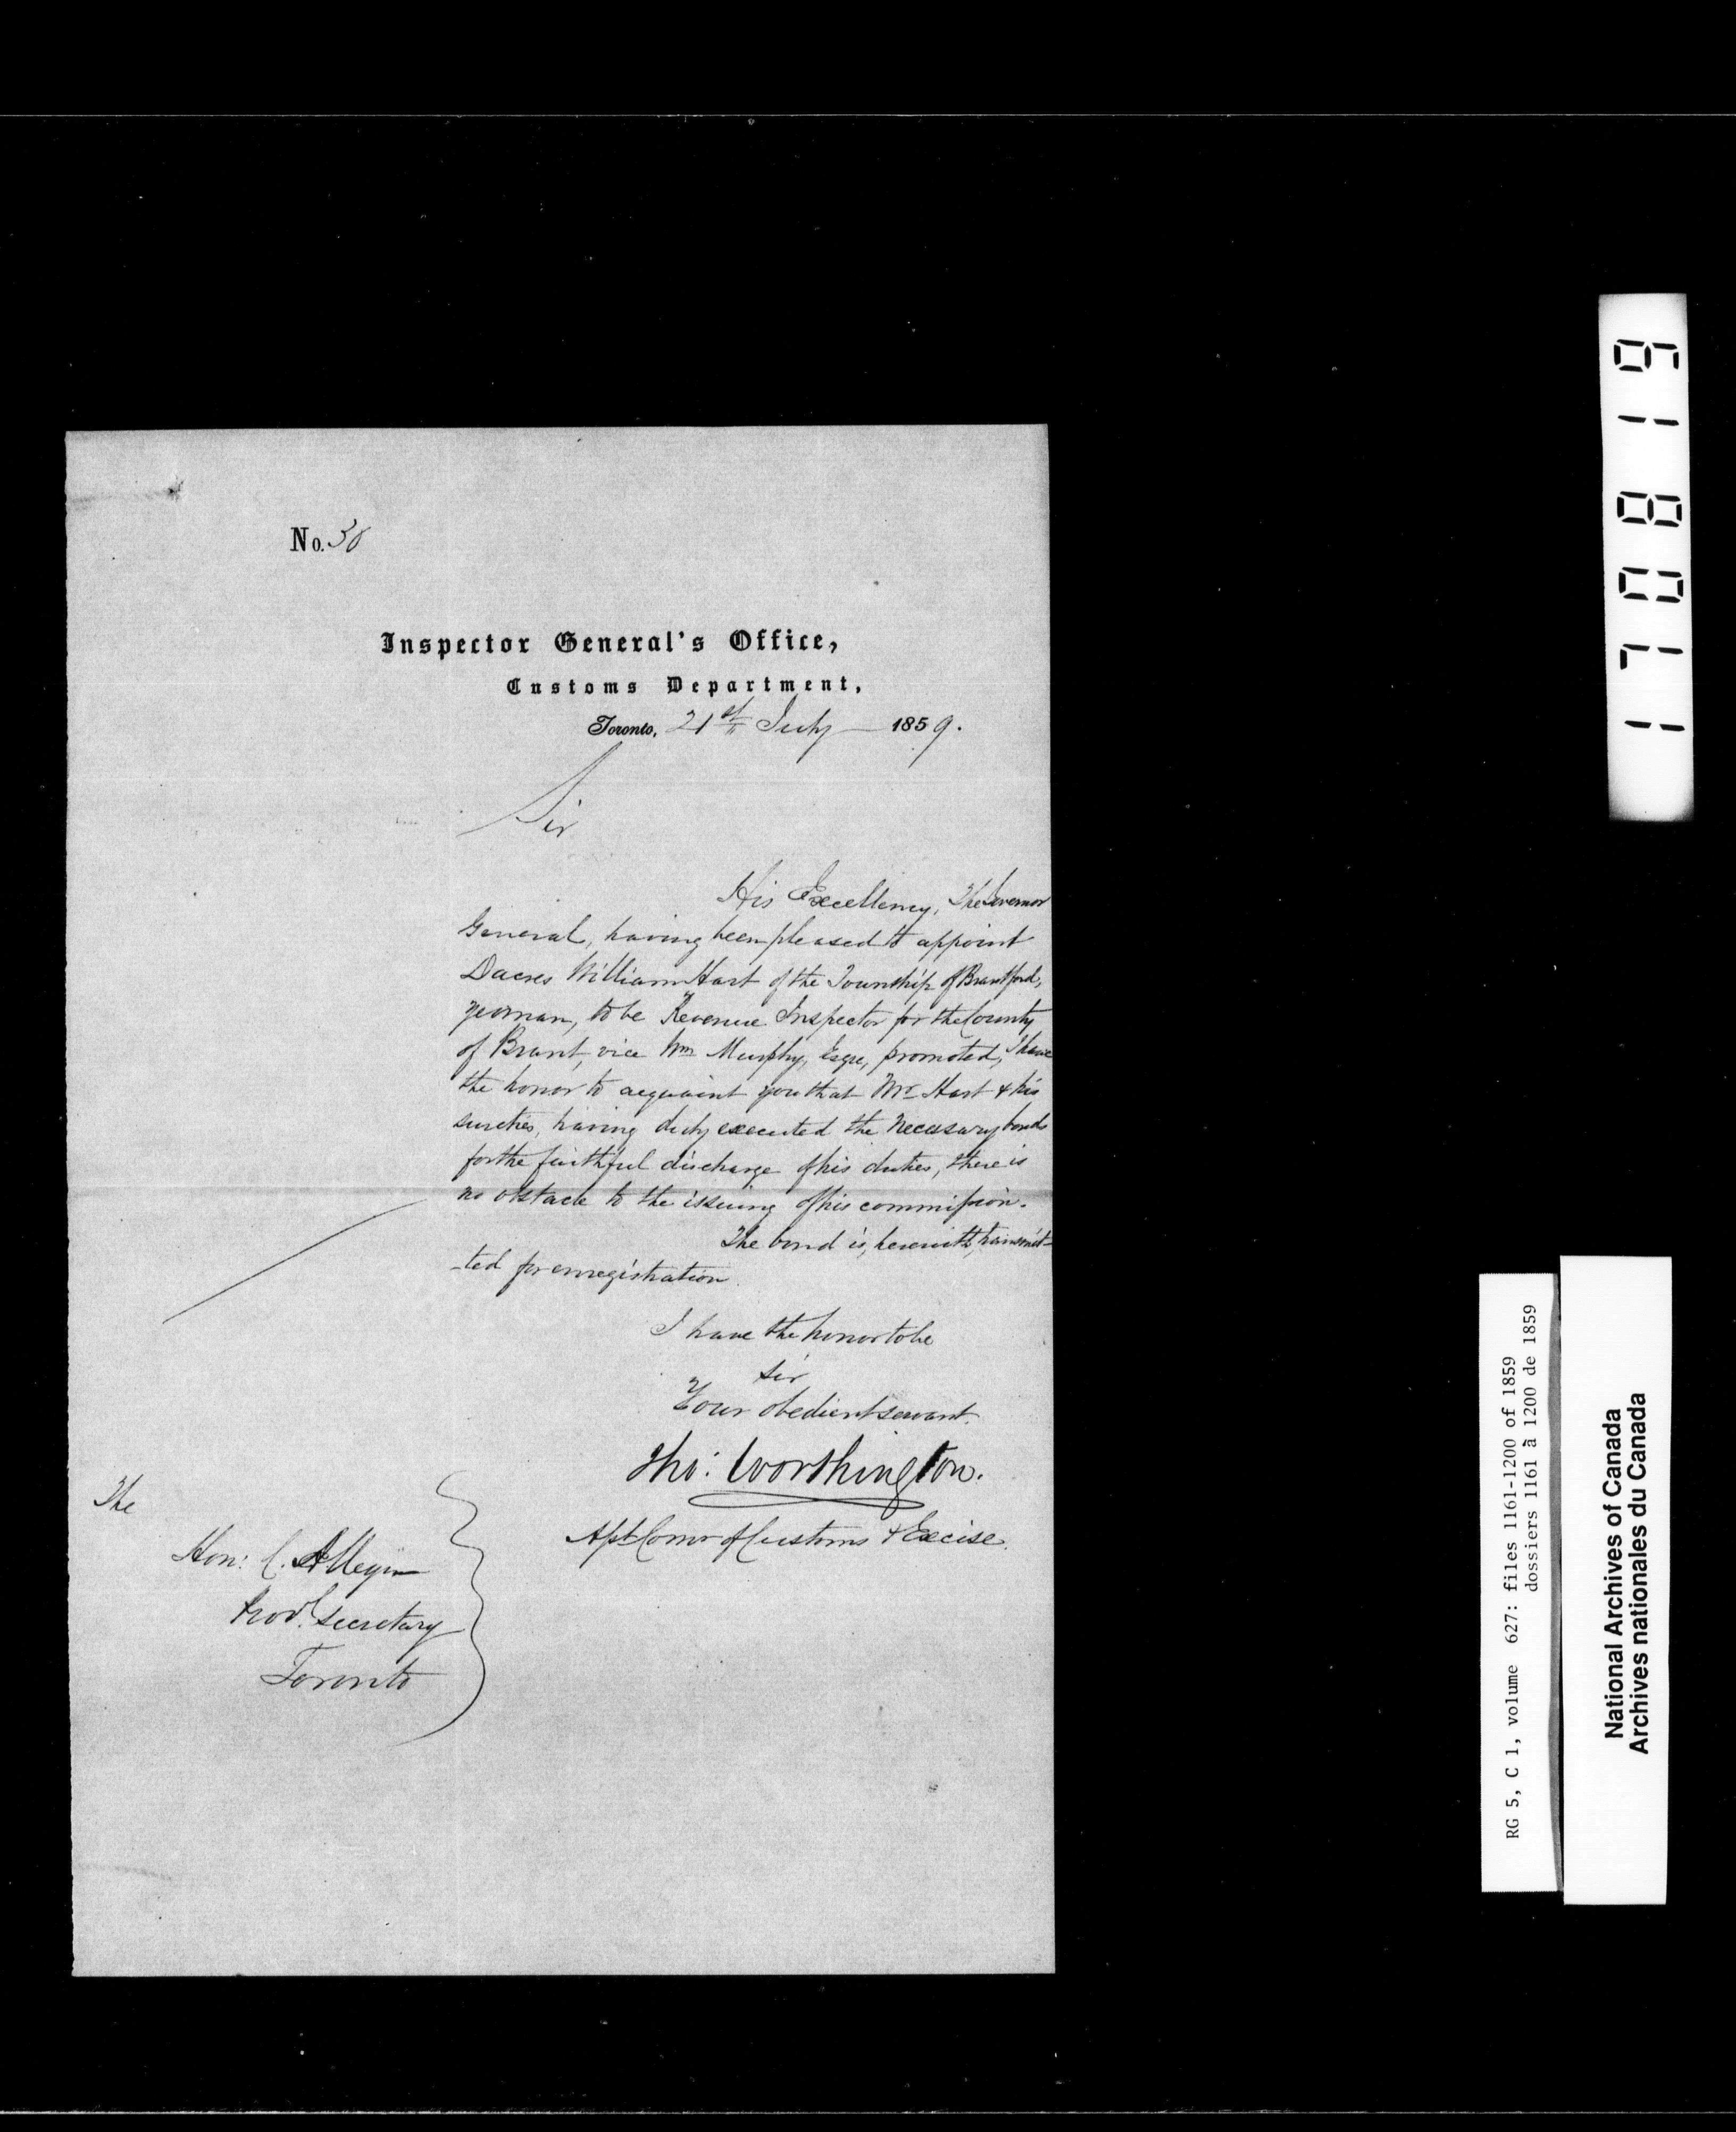 No. 38
Inspector General's Office,
Customs Department,
Toronto, 21st July 1859.
Sir
His Excellency, The Governor
General, having been pleased to appoint
Dacres William Hart of the Township of Brantford,
yeoman, to be Revenue Inspector for the County
of Brant, vice Wm Murphy, Esqre, promoted, I have
the honor to acquaint you that Mr Hart & his
sureties, having duly executed the necessary bonds
for the faithful discharge of his duties, there is
no obstacle to the issuing of his commission.
The bond is, herewith, transmit-
-ted for enregistration.
I have the honor to be
Sir
Your obedient servant.
Tho: Worthington.
Asst Comr of Customs & Excise.
The
Hon: C. Alleyn
Provl Secretary
Toronto
1170819
RG 5, C 1, volume 627: files 1161-1200 of 1859
dossiers 1161 à 1200 de 1859
National Archives of Canada
Archives nationales du Canada